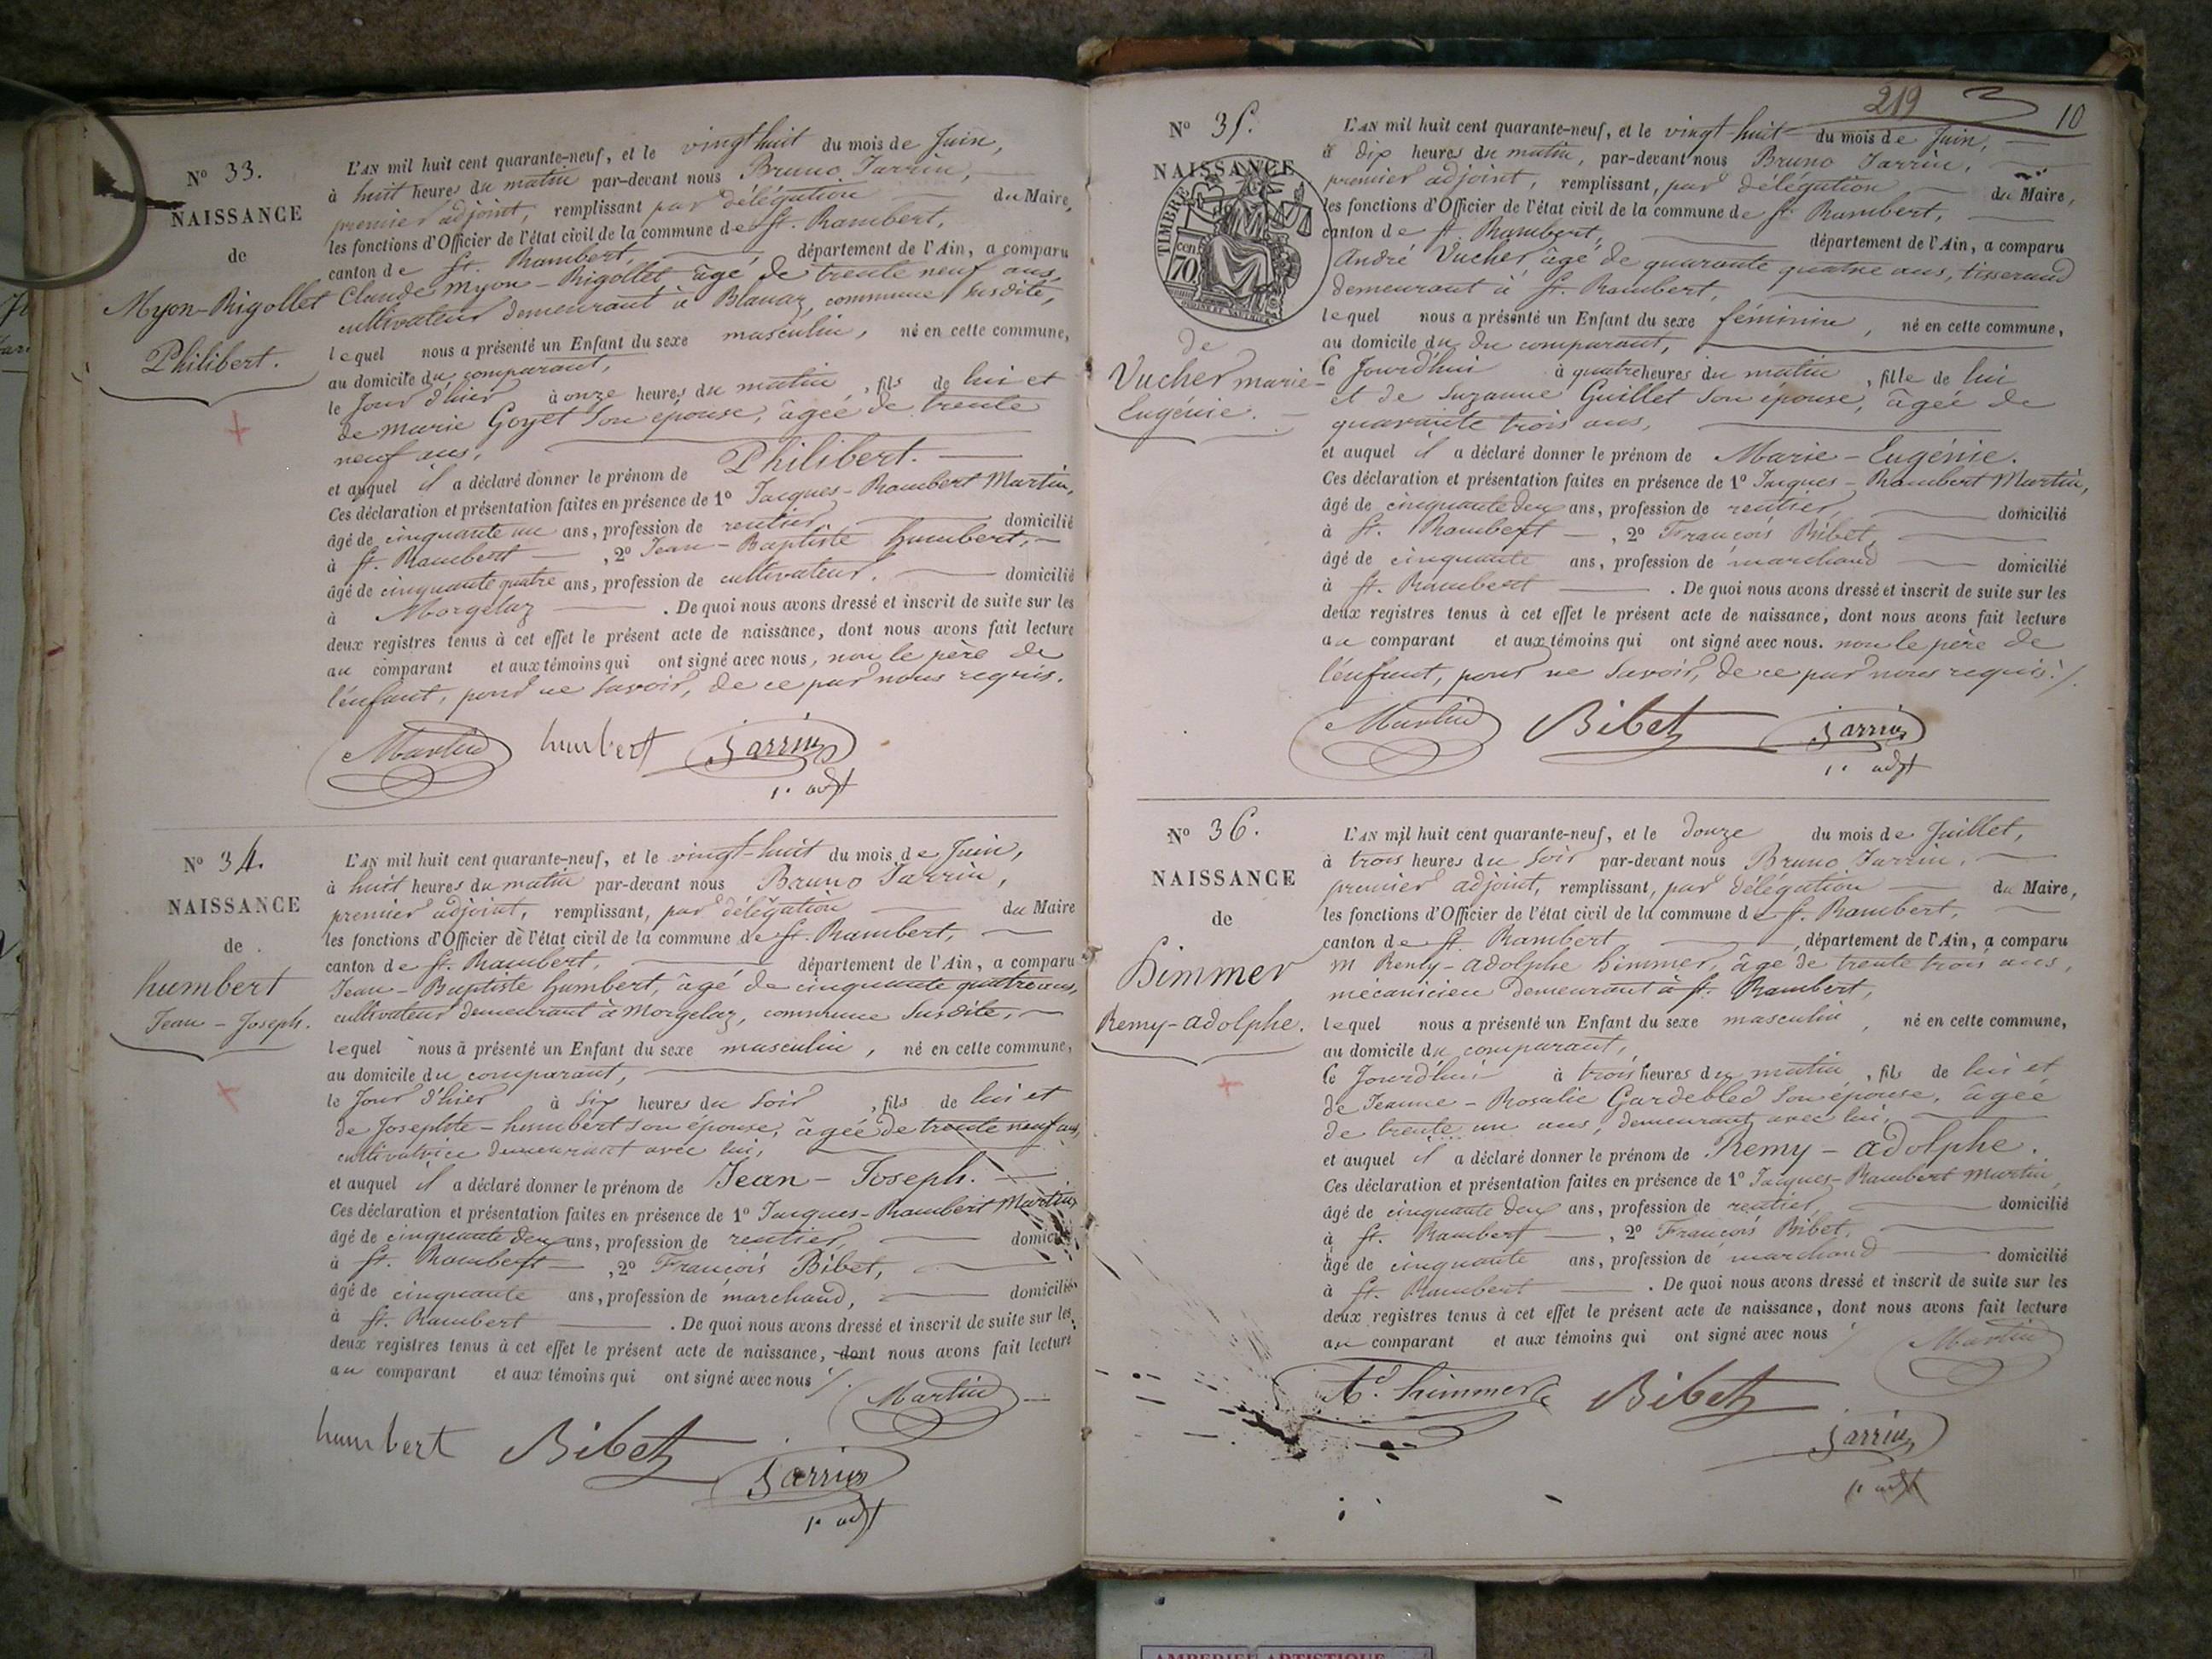 N° 33.
NAISSANCE
de
Myon-Rigollet
Philibert.
L'AN mil huit cent quarante-neuf, et le vingt huit du mois de Juin,
à huit heures du matin par-devant nous Bruno Jarrin,
premier adjoint, remplissant par délégation du Maire,
les fonctions d'Officier de l'état civil de la commune de St. Rambert,
canton de St. Rambert, département de l'Ain, a comparu
Claude Myon-Rigollet âgé de trente neuf ans,
cultivateur demeurant à Blanaz, commune susdite,
lequel nous a présenté un Enfant du sexe masculin, né en cette commune,
au domicile du comparant,
le jour d'hier à onze heures du matin, fils de lui et
de Marie Goyet son épouse, âgée de trente
neuf ans,
et auquel il a déclaré donner le prénom de Philibert.
Ces déclaration et présentation faites en présence de 1° Jacques-Rambert Martin,
âgé de cinquante un ans, profession de rentier, domicilié
à St. Rambert, 2° Jean-Baptiste humbert,
âgé de cinquante quatre ans, profession de cultivateur. domicilié
à Morgelaz. De quoi nous avons dressé et inscrit de suite sur les
deux registres tenus à cet effet le présent acte de naissance, dont nous avons fait lecture
au comparant et aux témoins qui ont signé avec nous, non le père de
l'enfant, pour ne savoir, de ce par nous requis.
Martin humbert Jarrin
1er adjt
N° 34.
NAISSANCE
de
humbert
Jean-Joseph.
L'AN mil huit cent quarante-neuf, et le vingt-huit du mois de Juin,
à huit heures du matin par-devant nous Bruno Jarrin,
premier adjoint, remplissant, par délégation du Maire
les fonctions d'Officier de l'état civil de la commune de St. Rambert,
canton de St. Rambert, département de l'Ain, a comparu
Jean-Baptiste humbert, âgé de cinquante quatre ans,
cultivateur demeurant à Morgelaz, commune susdite,
lequel nous a présenté un Enfant du sexe masculin, né en cette commune,
au domicile du comparant,
le jour d'hier à six heures du soir, fils de lui et
de Josephte-humbert son épouse, âgée de trente neuf ans,
cultivatrice demeurant avec lui,
et auquel il a déclaré donner le prénom de Jean-Joseph.
Ces déclaration et présentation faites en présence de 1° Jacques-Rambert Martin,
âgé de cinquante deux ans, profession de rentier, domicilié
à St. Rambert, 2° François Bibet,
âgé de cinquante ans, profession de marchand, domicilié
à St. Rambert. De quoi nous avons dressé et inscrit de suite sur les
deux registres tenus à cet effet le présent acte de naissance, dont nous avons fait lecture
au comparant et aux témoins qui ont signé avec nous ./.
Martin
humbert Bibet Jarrin
1er adjt
219
10
N° 35.
NAISSANCE
TIMBRE
cen
70
de
Vucher marie-
Eugénie.
L'AN mil huit cent quarante-neuf, et le vingt-huit du mois de Juin,
à dix heures du matin, par-devant nous Bruno Jarrin,
premier adjoint, remplissant, par délégation du Maire,
les fonctions d'Officier de l'état civil de la commune de St. Rambert,
canton de St. Rambert, département de l'Ain, a comparu
André Vucher âgé de quarante quatre ans, tisserand
demeurant à St. Rambert,
lequel nous a présenté un Enfant du sexe féminin, né en cette commune,
au domicile du du comparant,
Ce jourd'hui à quatre heures du matin, fille de lui
et de Suzanne Guillet son épouse, âgée de
quarante trois ans,
et auquel il a déclaré donner le prénom de Marie-Eugénie.
Ces déclaration et présentation faites en présence de 1° Jacques-Rambert Martin,
âgé de cinquante deux ans, profession de rentier, domicilié
à St. Rambert, 2° François Bibet,
âgé de cinquante ans, profession de marchand domicilié
à St. Rambert. De quoi nous avons dressé et inscrit de suite sur les
deux registres tenus à cet effet le présent acte de naissance, dont nous avons fait lecture
au comparant et aux témoins qui ont signé avec nous. non le père de
l'enfant, pour ne savoir, de ce par nous requis ./.
Martin Bibet Jarrin
1er adjt
N° 36.
NAISSANCE
de
himmer
Remy-adolphe.
L'AN mil huit cent quarante-neuf, et le douze du mois de Juillet,
à trois heures du soir par-devant nous Bruno Jarrin,
premier adjoint, remplissant, par délégation du Maire,
les fonctions d'Officier de l'état civil de la commune de St. Rambert,
canton de St. Rambert, département de l'Ain, a comparu
M Remy-adolphe himmer, âgé de trente trois ans,
mécanicien demeurant à St. Rambert,
lequel nous a présenté un Enfant du sexe masculin, né en cette commune,
au domicile du comparant,
Ce jourd'hui à trois heures du matin, fils de lui et
de Jeanne-Rosalie Gardebled son épouse, âgée
de trente un ans, demeurant avec lui,
et auquel il a déclaré donner le prénom de Remy-adolphe.
Ces déclaration et présentation faites en présence de 1° Jacques-Rambert Martin,
âgé de cinquante deux ans, profession de rentier, domicilié
à St. Rambert, 2° François Bibet,
âgé de cinquante ans, profession de marchand domicilié
à St. Rambert. De quoi nous avons dressé et inscrit de suite sur les
deux registres tenus à cet effet le présent acte de naissance, dont nous avons fait lecture
au comparant et aux témoins qui ont signé avec nous ./.
Martin
Ad. himmer Bibet
Jarrin
1er adjt
AMBERIEU ARTISTIQUE